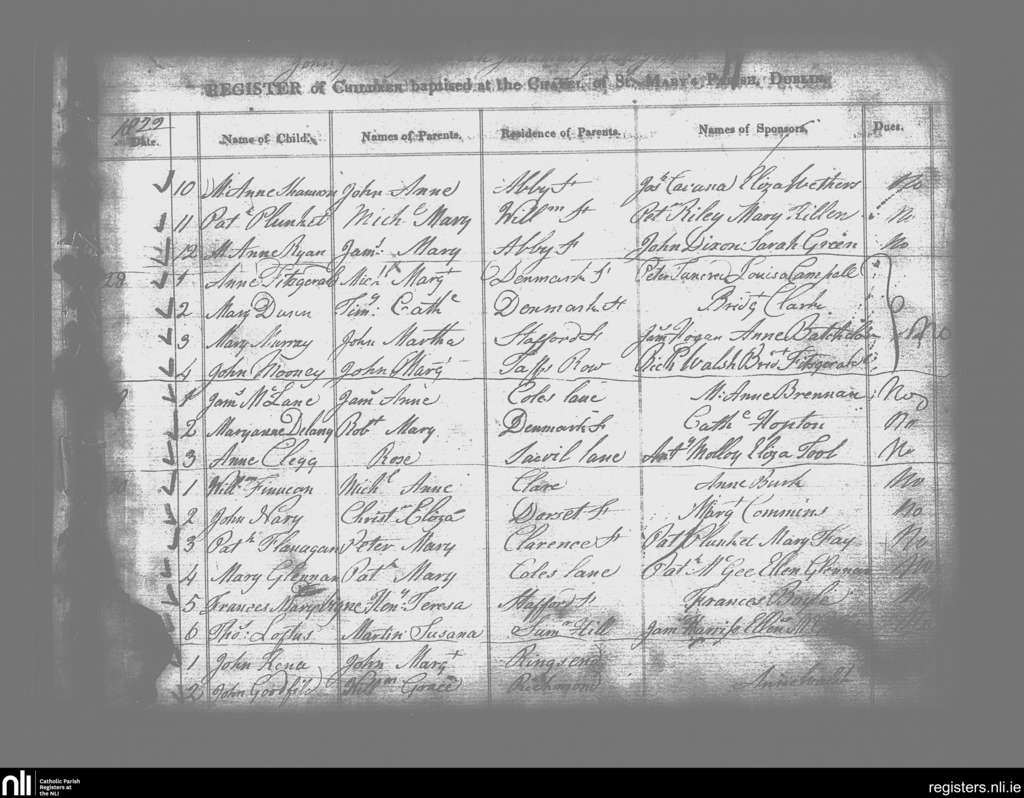 REGISTER of CHILDREN baptised at the CHAPEL of ST. MARY'S PARISH, DUBLIN,
1829
Date. Name of Child. Names of Parents. Residence of Parents. Names of Sponsors. Dues.
10 M. Anne Shannon John Anne Abby St Jos. Cavana Eliza Wethers No
11 Patk Plunket Michl Mary Willm St Patk Riley Mary Killen N
12 M. Anne Ryan Jams. Mary Abby St John Dixon Sarah Green No
1 Anne Fitzgerald Michl Margt Denmark St Peter Louisa Campbell
2 Mary Dunn Timy. Cathe Denmark St Bridgt Clark
3 Mary Murray John Martha Stafford St Jams Hogan Anne No
4 John Mooney John Margt Taffs Row Richd Walsh Bridt Fitzgerald
1 Jams McLane Jams Anne Coles lane M. Anne Brennan No
2 Maryanne Delany Robt Mary Denmark St Cathe Hopton No
3 Anne Clegg Rose Sacvil lane Anty Molloy Eliza Tool No
1 Willm Finucan Michl Anne Clare Anne Burk No
2 John Nary Christr Eliza Dorset St Margt Commins No
3 Patk Flanagan Peter Mary Clarence St Patk Plunket Mary Hay No
4 Mary Glennan Patk Mary Coles lane Patk McGee Ellen Glennan
5 Frances Mary Heny. Teresa Stafford St Frances Boyle
6 Thos: Loftus Martin Susana Sumr Hill Jams Harriss Ellen
1 John Kena John Margt Ringsend
2 John Willm Grace Richmond Anne
nli
Catholic Parish
Registers at
the NLI
registers.nli.ie